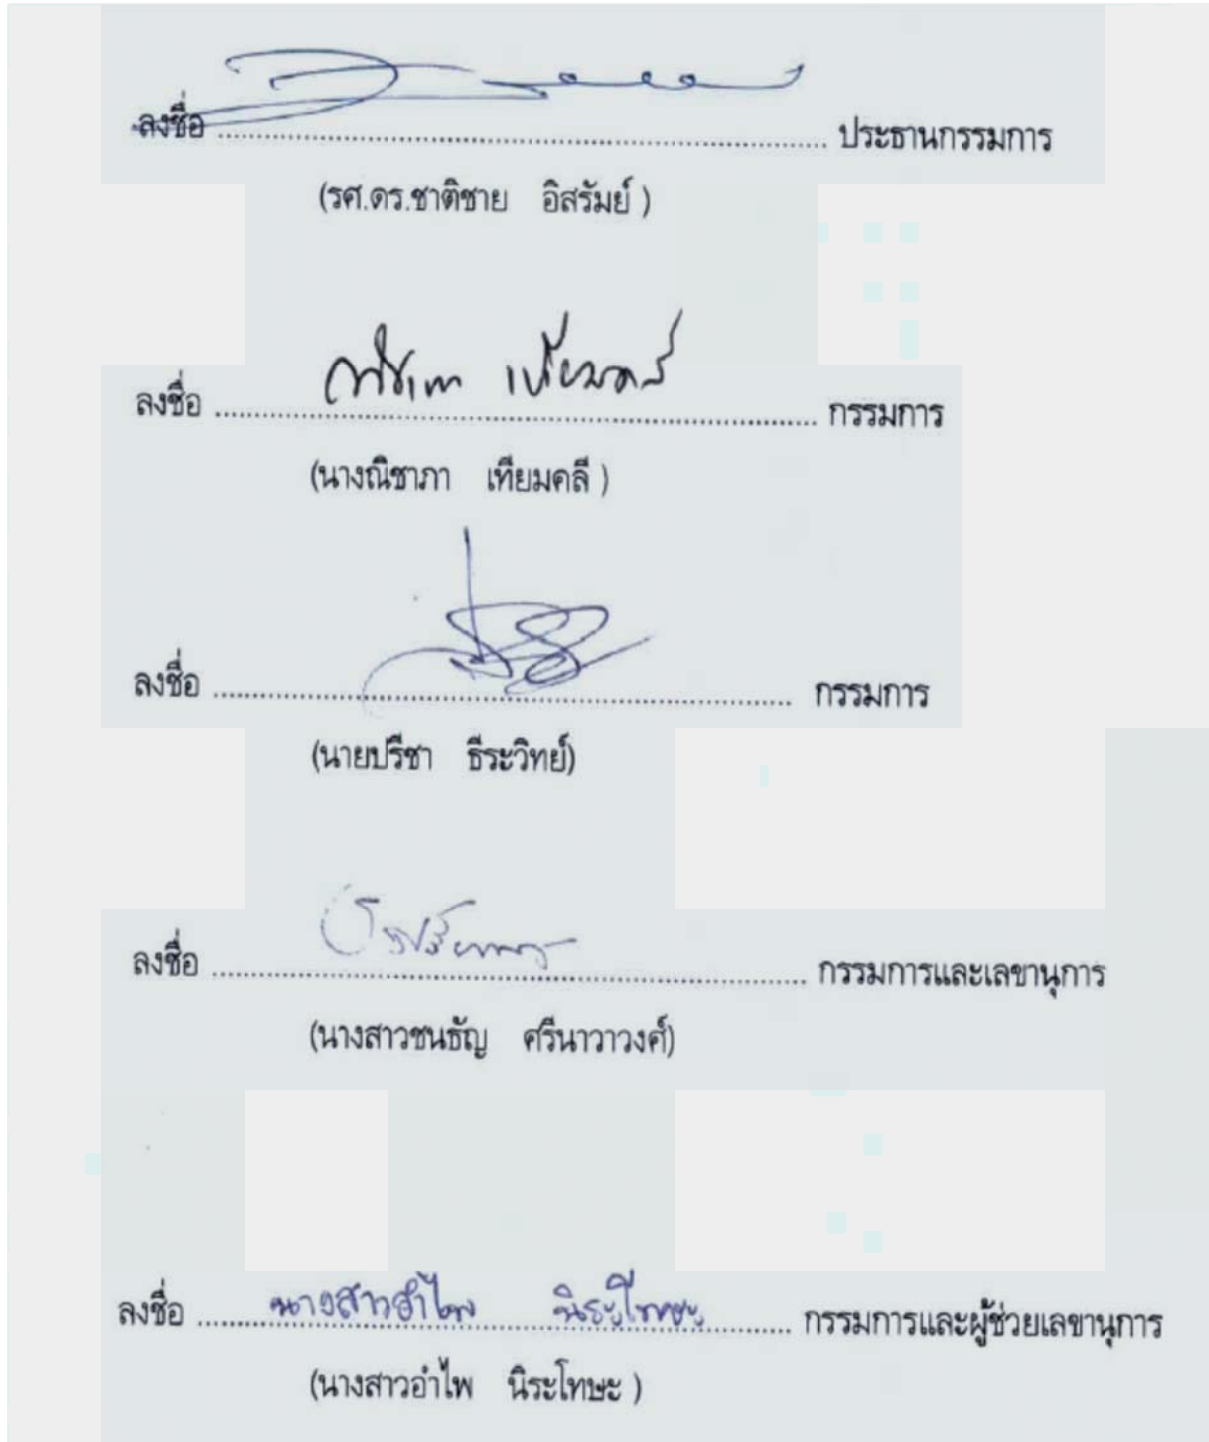 ลงชื่อ ........................................ ประธานกรรมการ
(รศ.ดร.ชาติชาย อิสรัมย์ )
ลงชื่อ ........................................ กรรมการ
(นางณิชาภา เทียมคลี )
ลงชื่อ ........................................ กรรมการ
(นายปรีชา ธีระวิทย์)
ลงชื่อ ........................................ กรรมการและเลขานุการ
(นางสาวชนธัญ ศรีนาวาวงศ์)
ลงชื่อ นางสาวอำไพ นิระโทษะ กรรมการและผู้ช่วยเลขานุการ
(นางสาวอำไพ นิระโทษะ )